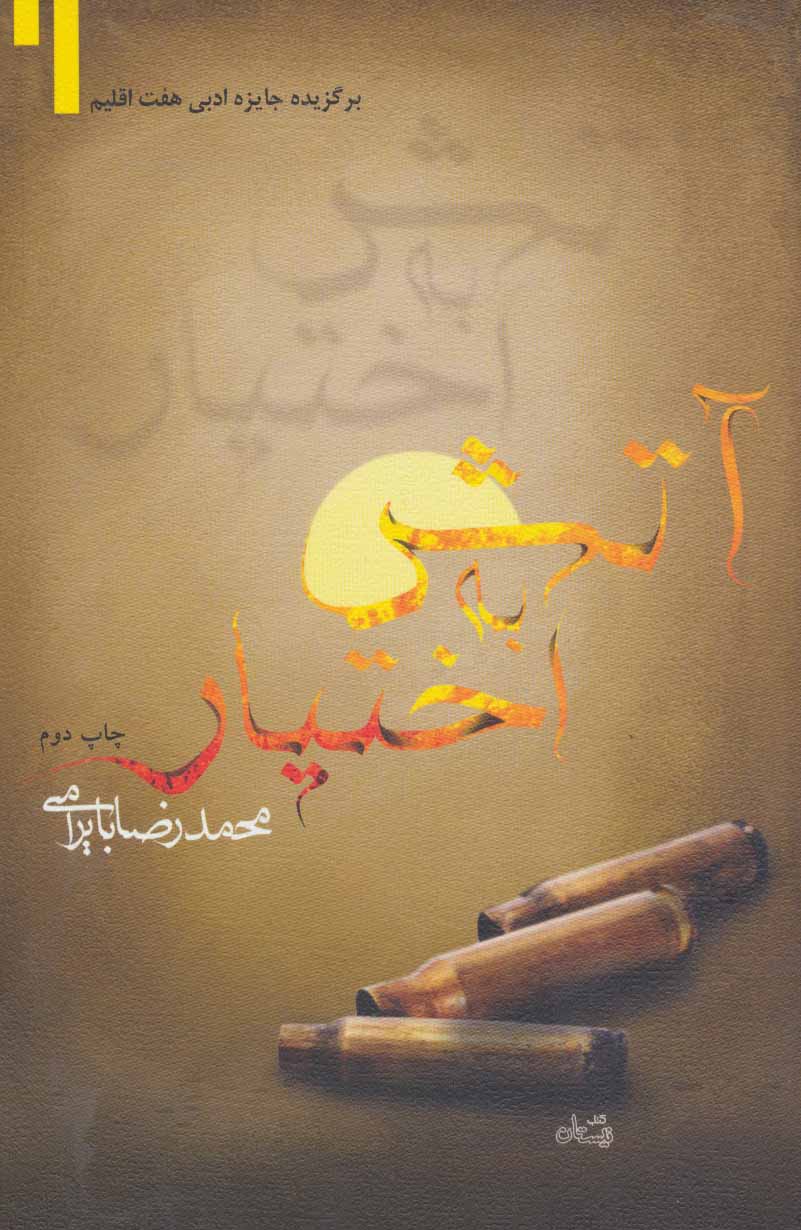 برگزیده جایزه ادبی هفت اقلیم
آتش
به
اختیار
آتش
به
اختیار
چاپ دوم
محمدرضا بایرامی
کتاب
نیستان